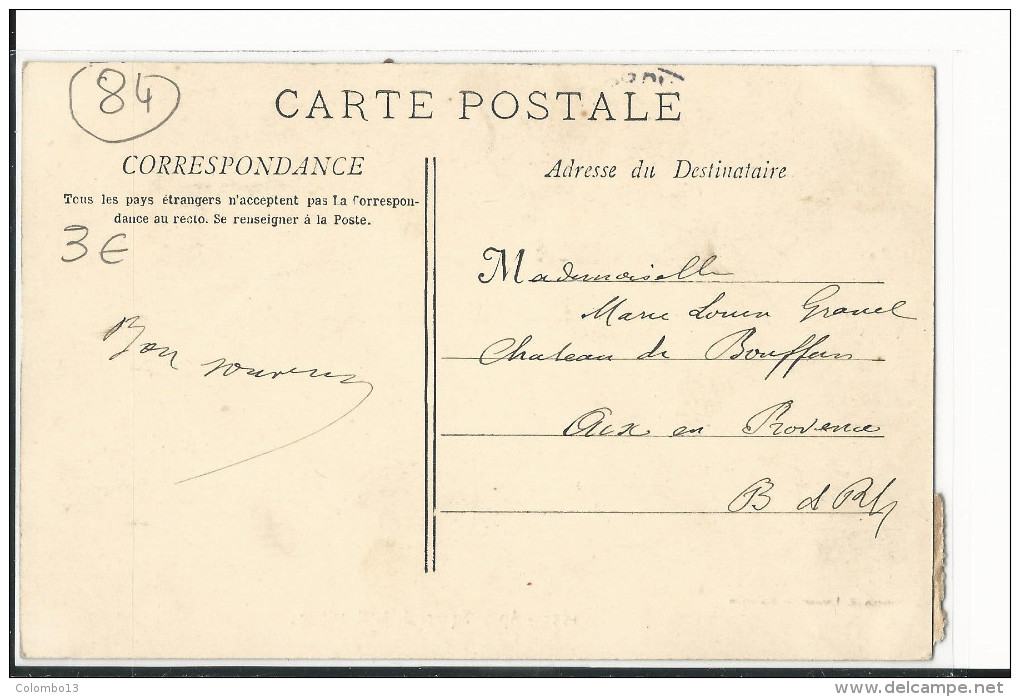 84
CARTE POSTALE
CORRESPONDANCE
Tous les pays étrangers n'acceptent pas la Correspon-
dance au recto. Se renseigner à la Poste.
3€
Bon souvenir
Adresse du Destinataire
Mademoiselle
Marie Louise Gravel
Chateau de Bouffan
Aix en Provence
B d Rh
Colombo13
www.delcampe.net